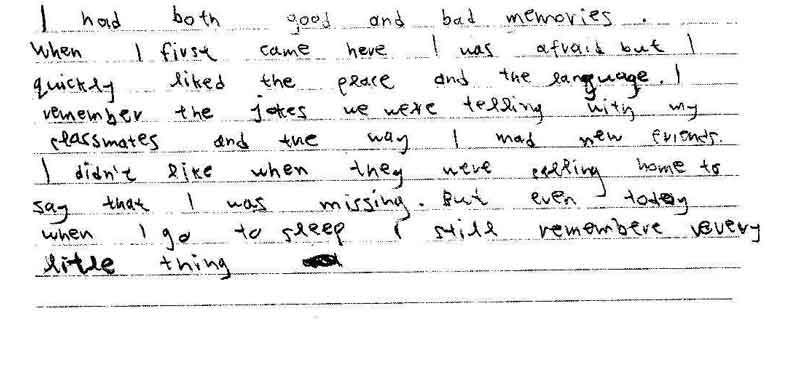 I had both good and bad memories.
When I first came here I was afraid but I
quickly liked the place and the language. I
remember the jokes we were telling with my
classmates and the way I mad new friends.
I didn't like when they were calling home to
say that I was missing. But even today
when I go to sleep I still remembere every
litlle thing